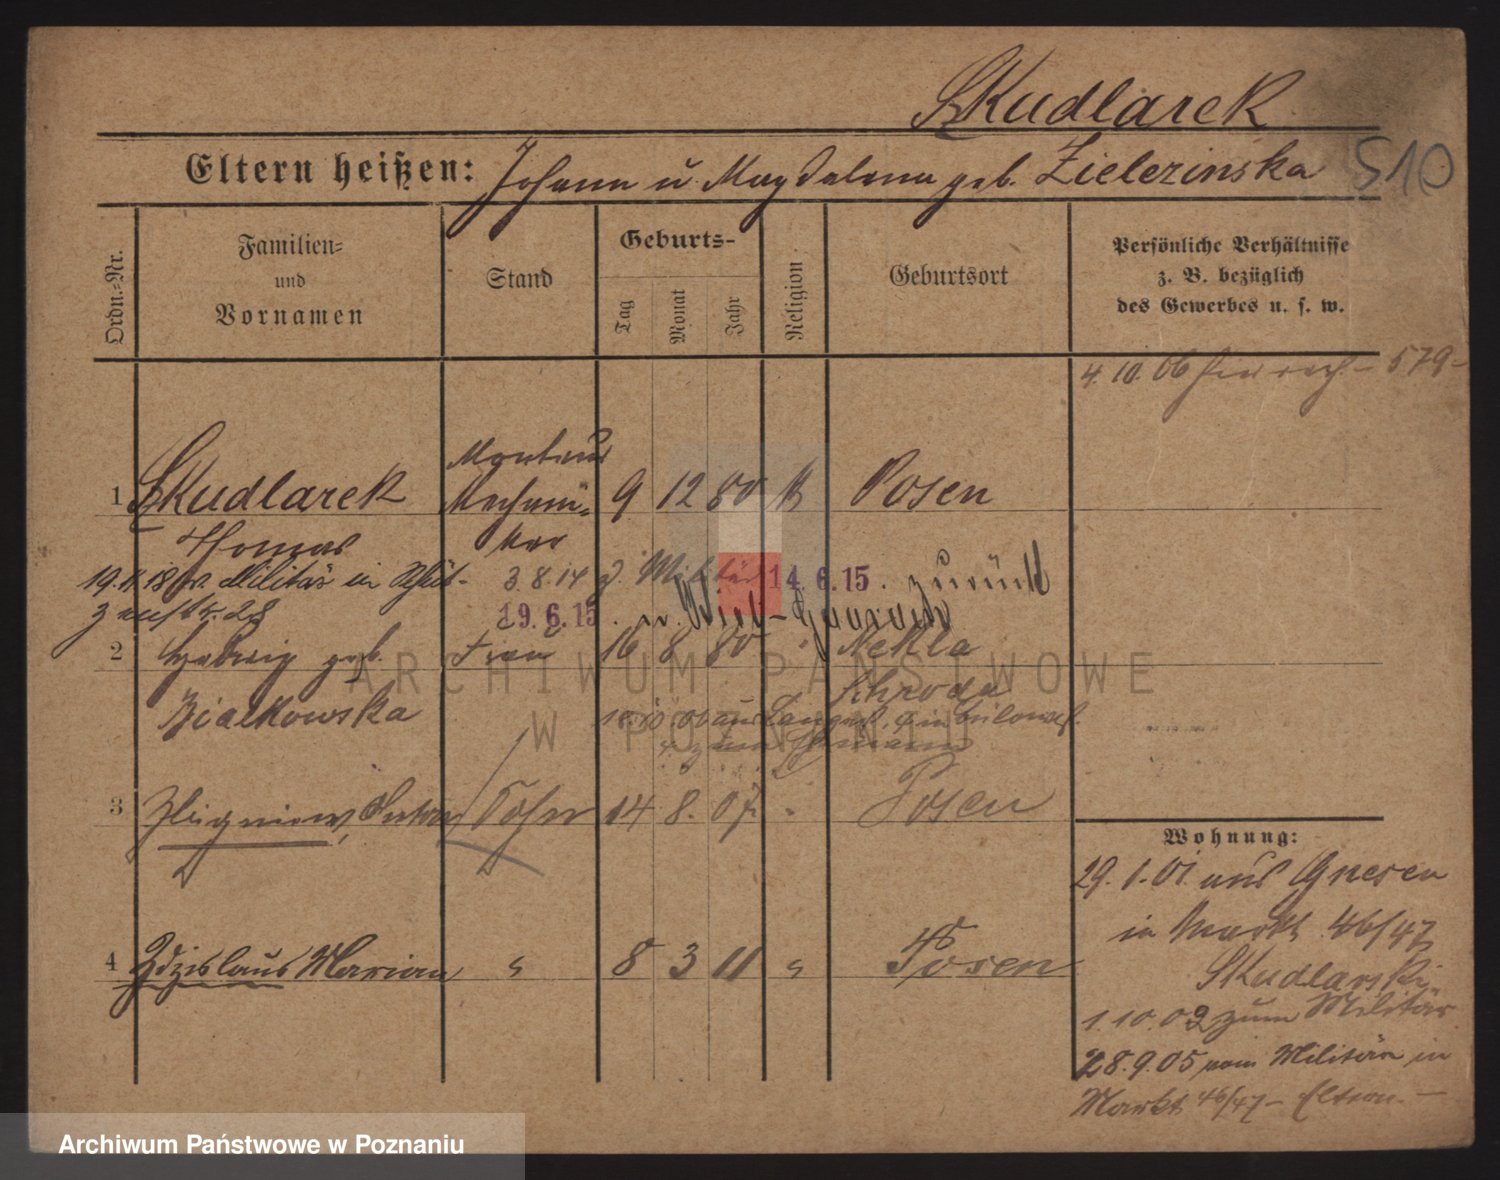 Skudlarek
Eltern heißen: Johann u. Magdalena geb. Zielezinska 510
Ordn.-Nr.
Familien- und Vornamen
Stand
Geburts-
Tag
Monat
Jahr
Religion
Geburtsort
Persönliche Verhältnisse
z. B. bezüglich
des Gewerbes u. s. w.
4. 10. 06 579-
Monteur
1 Skudlarek Mechani- 9 12 80 k Posen
Thomas ker
19.11.18 v. Militär in
3.8.14 z. Militär 14.6.15. zurück
19.6.15. n.
2 Hedwig geb. Frau 16 8 80 " Nekla
Bialkowska Schroda
3 Zbigniew, Anton Sohn 14 8. 07. " Posen
4 Zdzislaus Marian " 8 3 11 " Posen
Wohnung:
29. 1. 01. aus Gnesen
in Markt 46/47
Skudlarski.
1. 10. 02 zum Militär
28. 9. 05 vom Militär in
Markt 46/47 - Eltern. -
ARCHIWUM PAŃSTWOWE
W POZNANIU
Archiwum Państwowe w Poznaniu